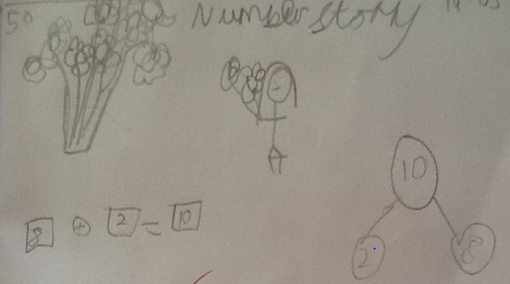 50
Number story
8 + 2 = 10
10
2 8